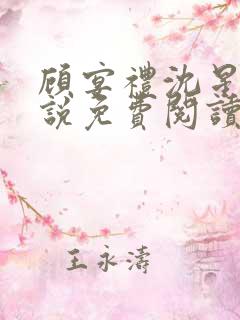 顧宴禮沈星
說免費閱讀
王永濤